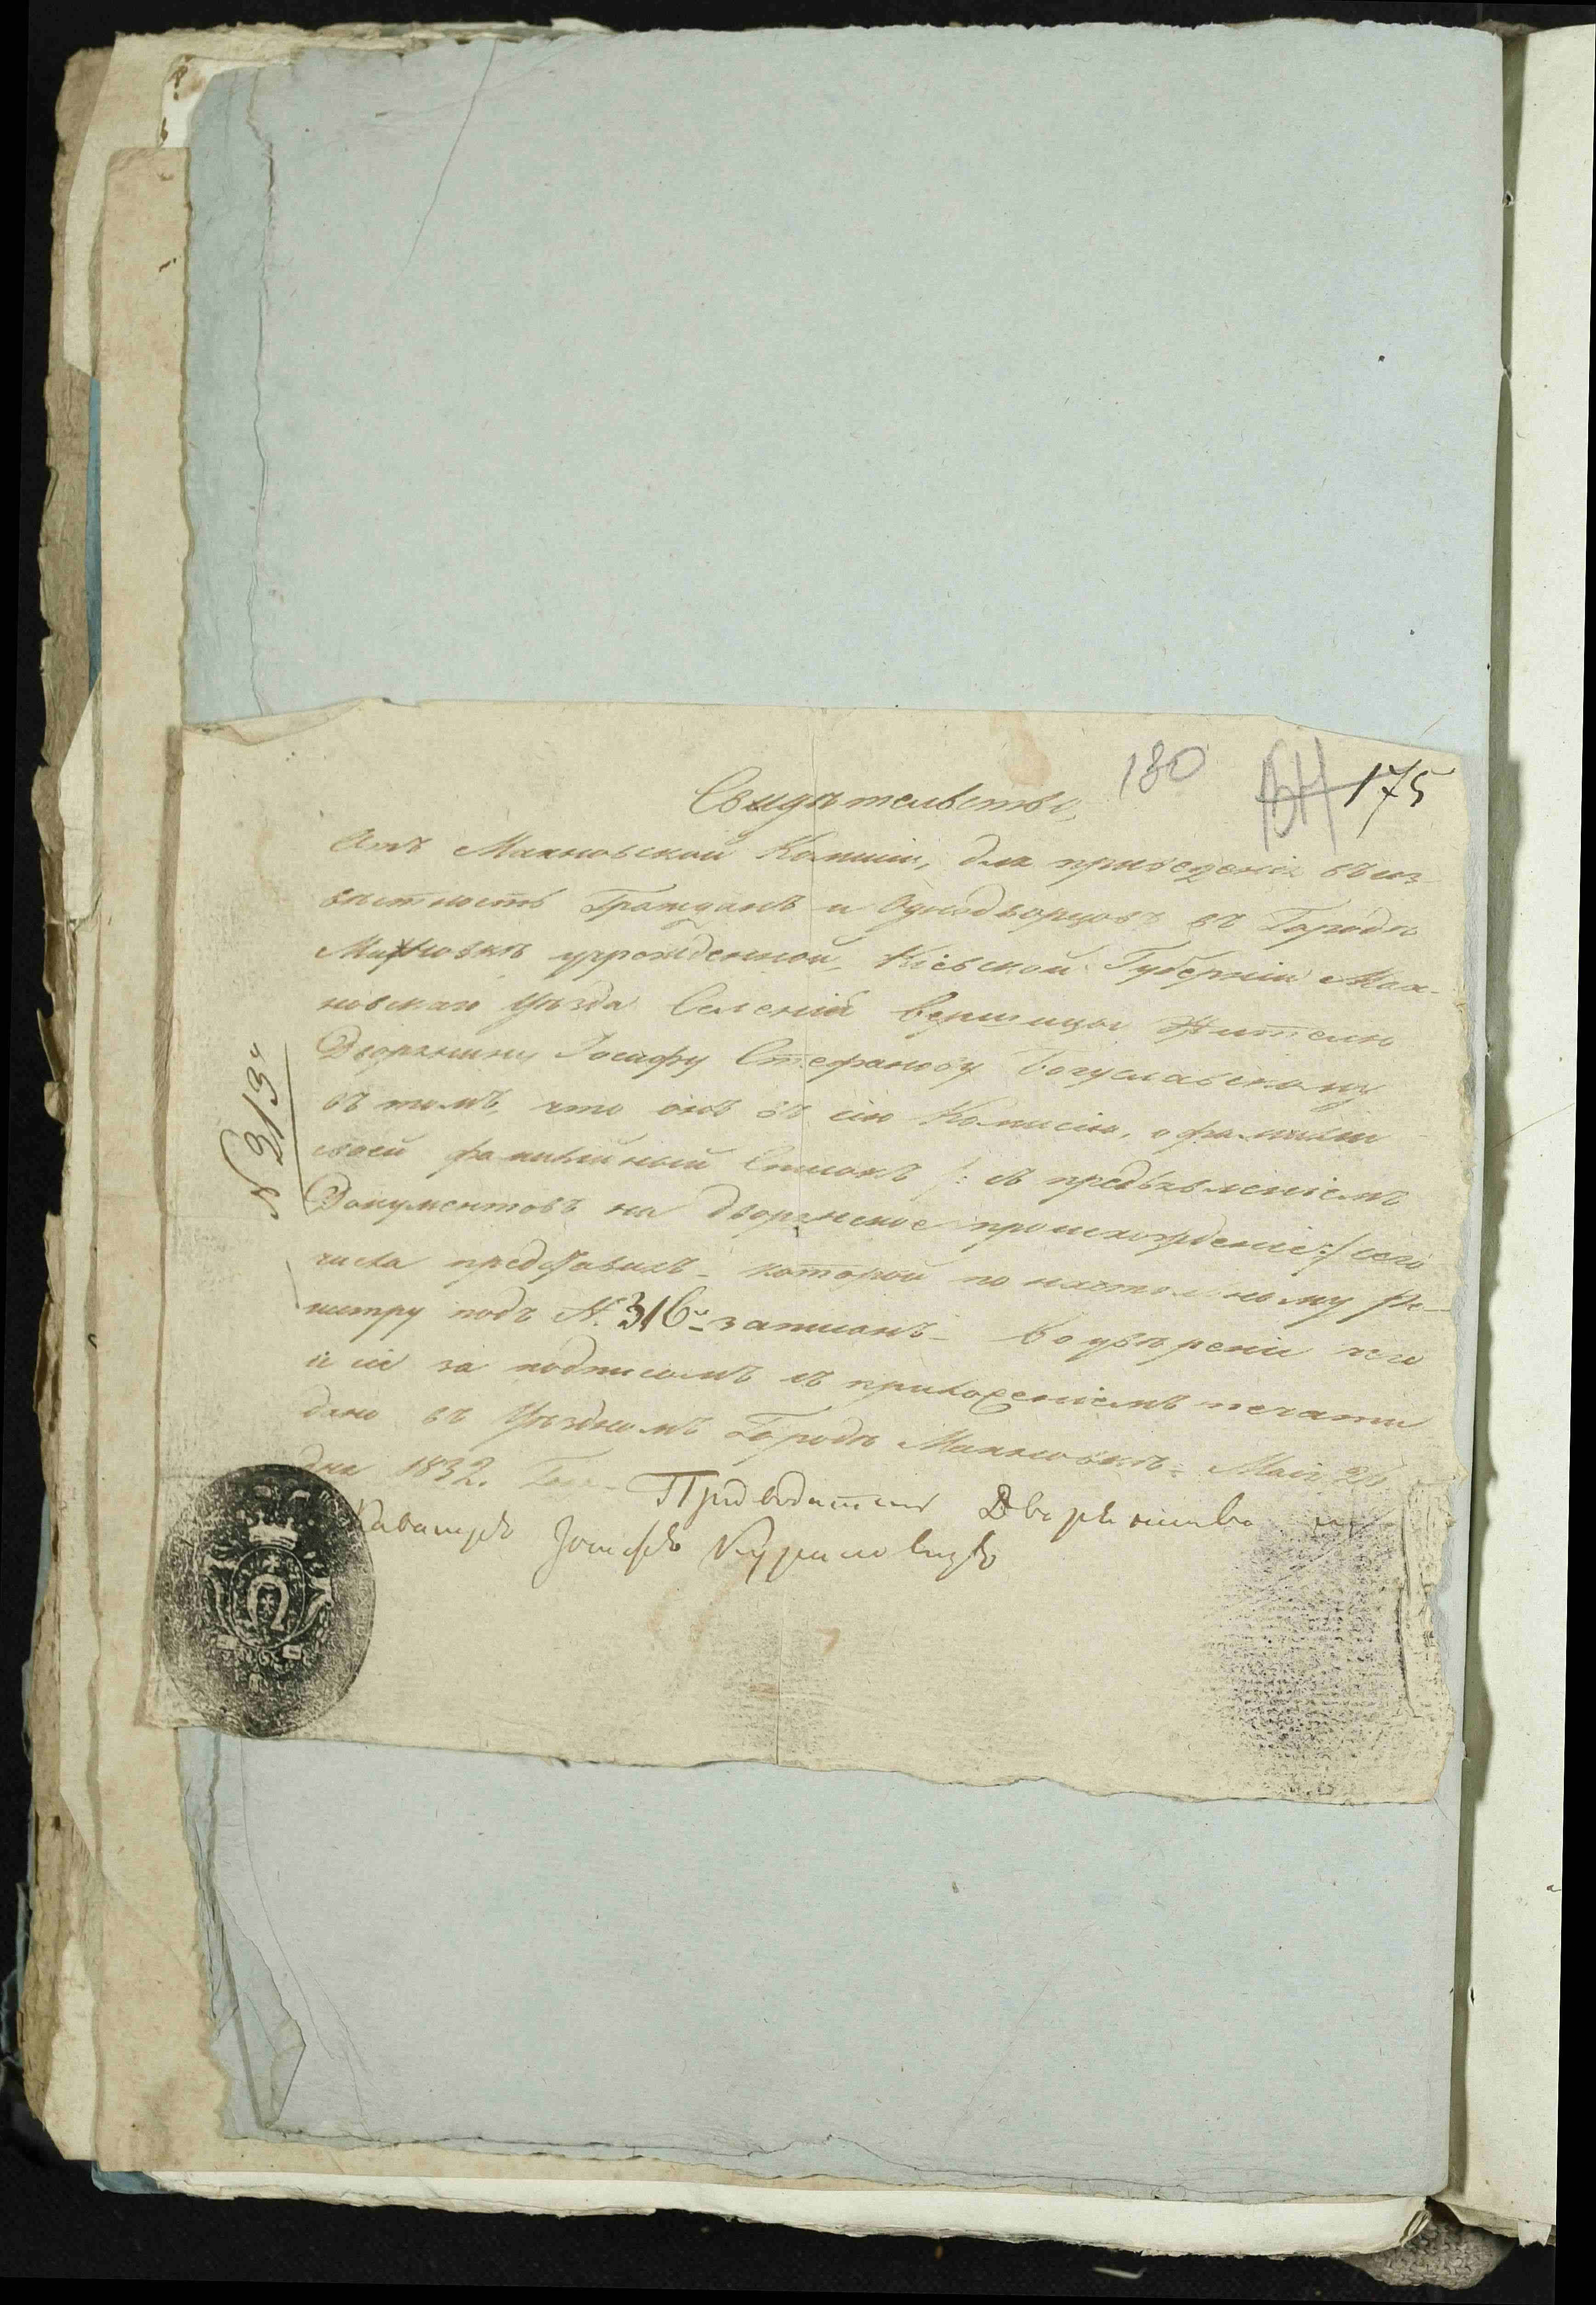 180 175
Свидѣтельство,
Отъ Махновской Комисіи, для приведенія въ из-
вѣстность Гражданъ и Однодворцовъ въ Городѣ
Махновкѣ учрежденной, Кіевской Губерніи Мах-
новскаго уѣзда Селенія Вершицы Жителю
Дворянину Іосифу Стефанову Богуславскому
въ томъ, что онъ въ сію Комисію, о фамиліи
своей фамилійный Списокъ /: съ предъявленіемъ
Документовъ на дворянское происхожденіе :/ сего
числа представилъ - которой по настольному Ре-
гистру подъ N. 316 записанъ - Во увѣреніи чего
и сіе за подписомъ съ приложеніемъ печати
дано въ Уѣздномъ Городѣ Махновкѣ = Маія 26
дня 1832. Года
Предводитель Дворянства и
Кавалеръ Іосифъ
N 313